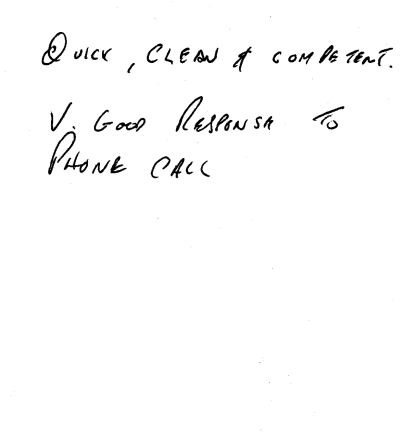 Quick, Clean & competent.
V. Good Response to
Phone Call